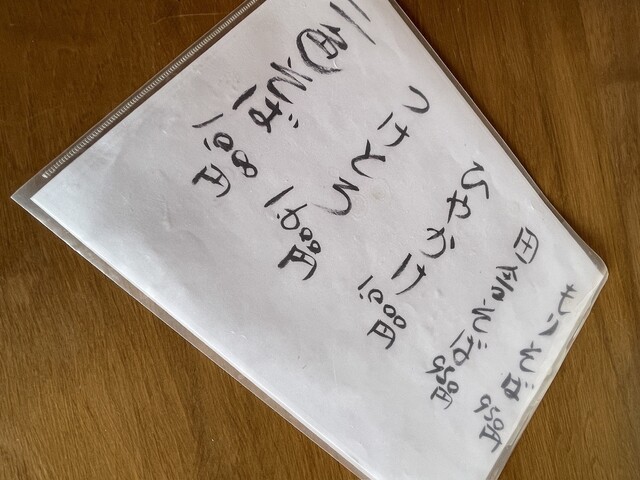 もりそば 950円
田舎そば 950円
ひやかけ 1,000円
つけとろ 1,000円
二色そば 1,000円